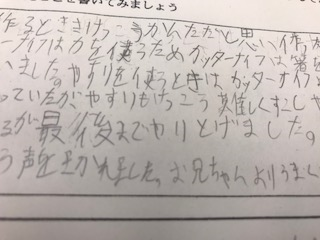 ことを書いてみましょう
作るときけっこうかんただと思い作
ーナイフは力を使うためカッターナイフは
いました。やすりを使うときはカッターナイフと
っていたがやすりもけっこう難しくすこしや
るが最後までやりとげました。
う声を
れました。お兄ちゃんよりうまく